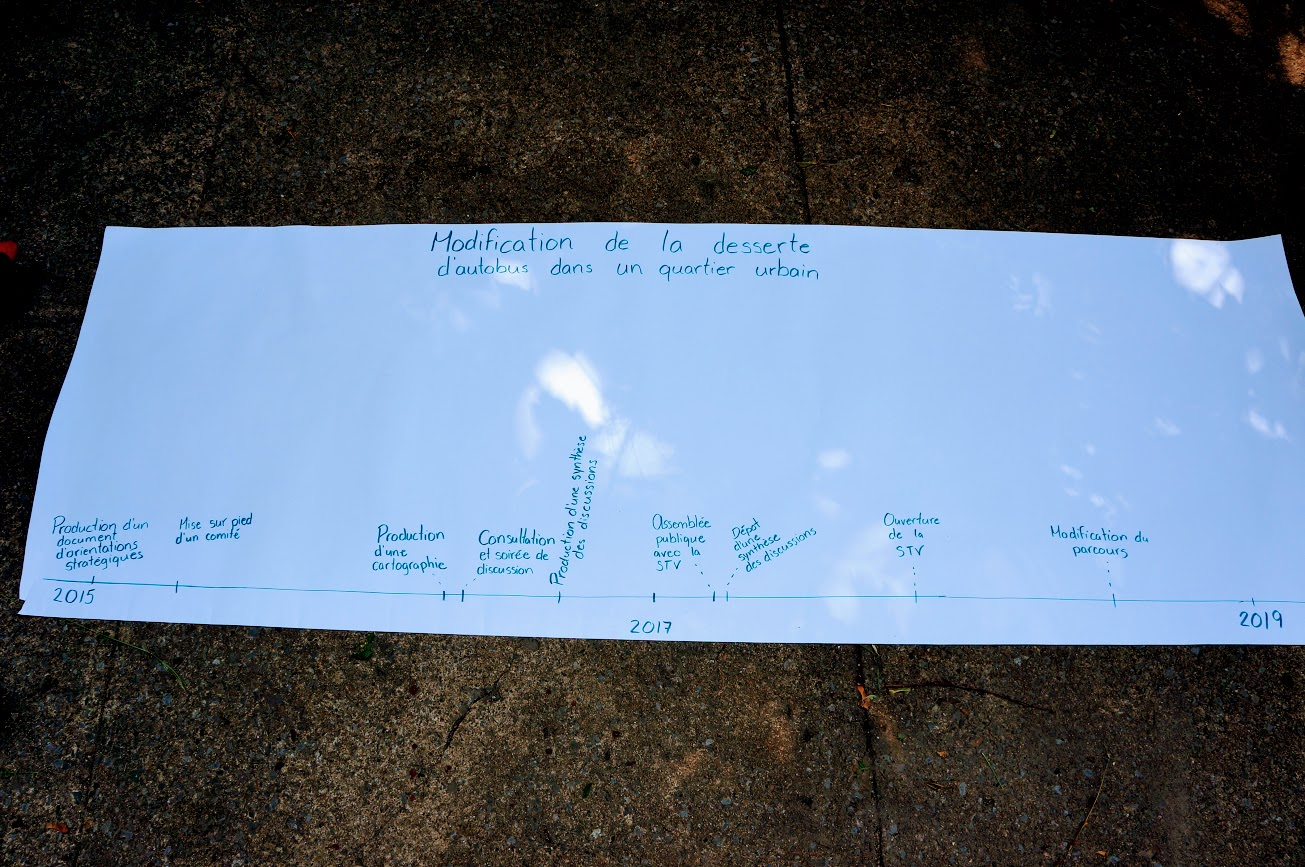 Modification de la desserte
d'autobus dans un quartier urbain
Production d'un
document
d'orientations
stratégiques
Mise sur pied
d'un comité
Production
d'une
cartographie
Consultation
et soirée de
discussion
Production d'une synthèse
des discussions
Assemblée
publique
avec la
STV
Dépôt
d'une
synthèse
des discussions
Ouverture
de la
STV
Modification du
parcours
2015
2017
2019